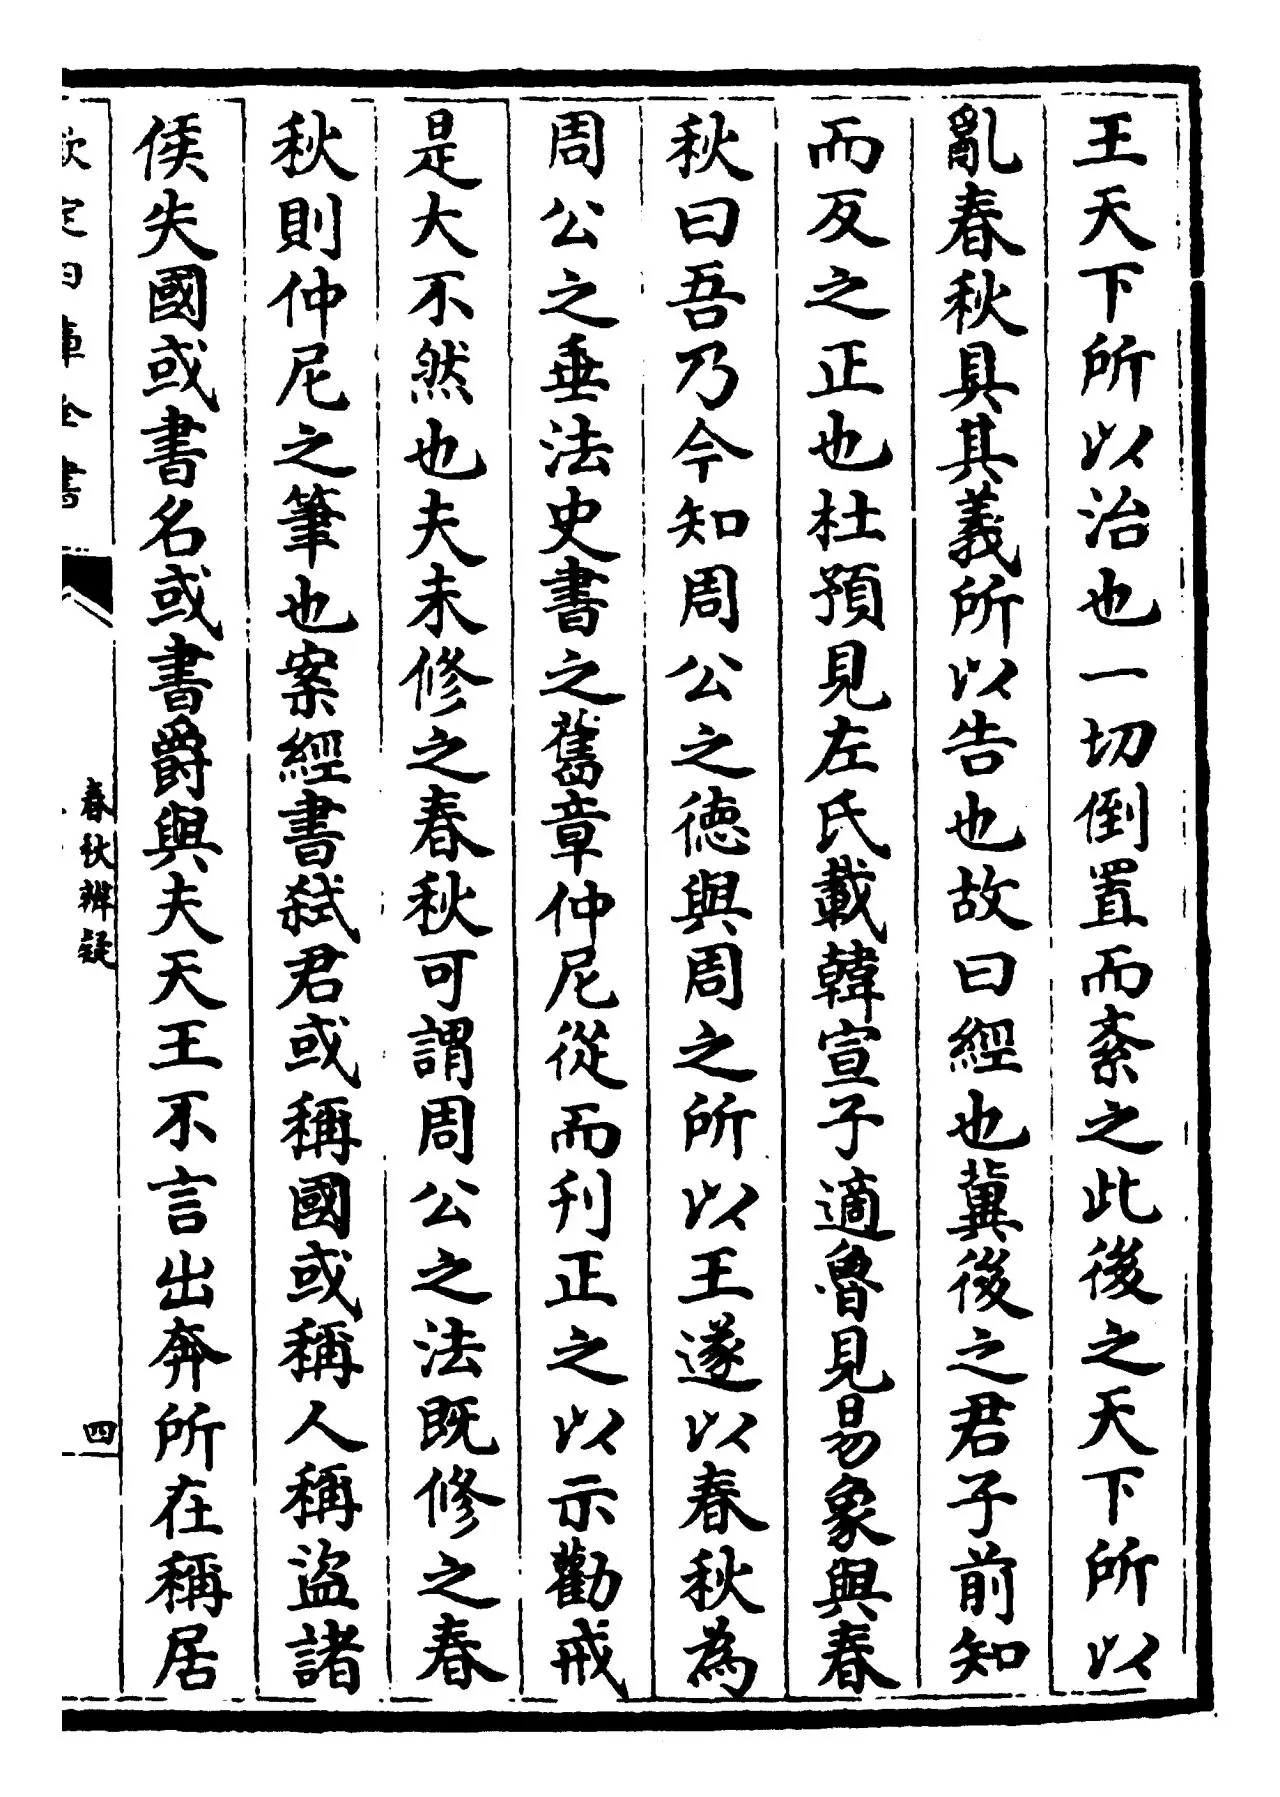 王天下所以治也一切倒置而紊之此後之天下所以
亂春秋具其義所以告也故曰經也冀後之君子前知
而反之正也杜預見左氏載韓宣子適魯見易象與春
秋曰吾乃今知周公之德與周之所以王遂以春秋為
周公之垂法史書之舊章仲尼從而刊正之以示勸戒
是大不然也夫未修之春秋可謂周公之法既修之春
秋則仲尼之筆也案經書弑君或稱國或稱人稱盜諸
侯失國或書名或書爵與夫天王不言出奔所在稱居
欽定四庫全書
春秋辨疑
四